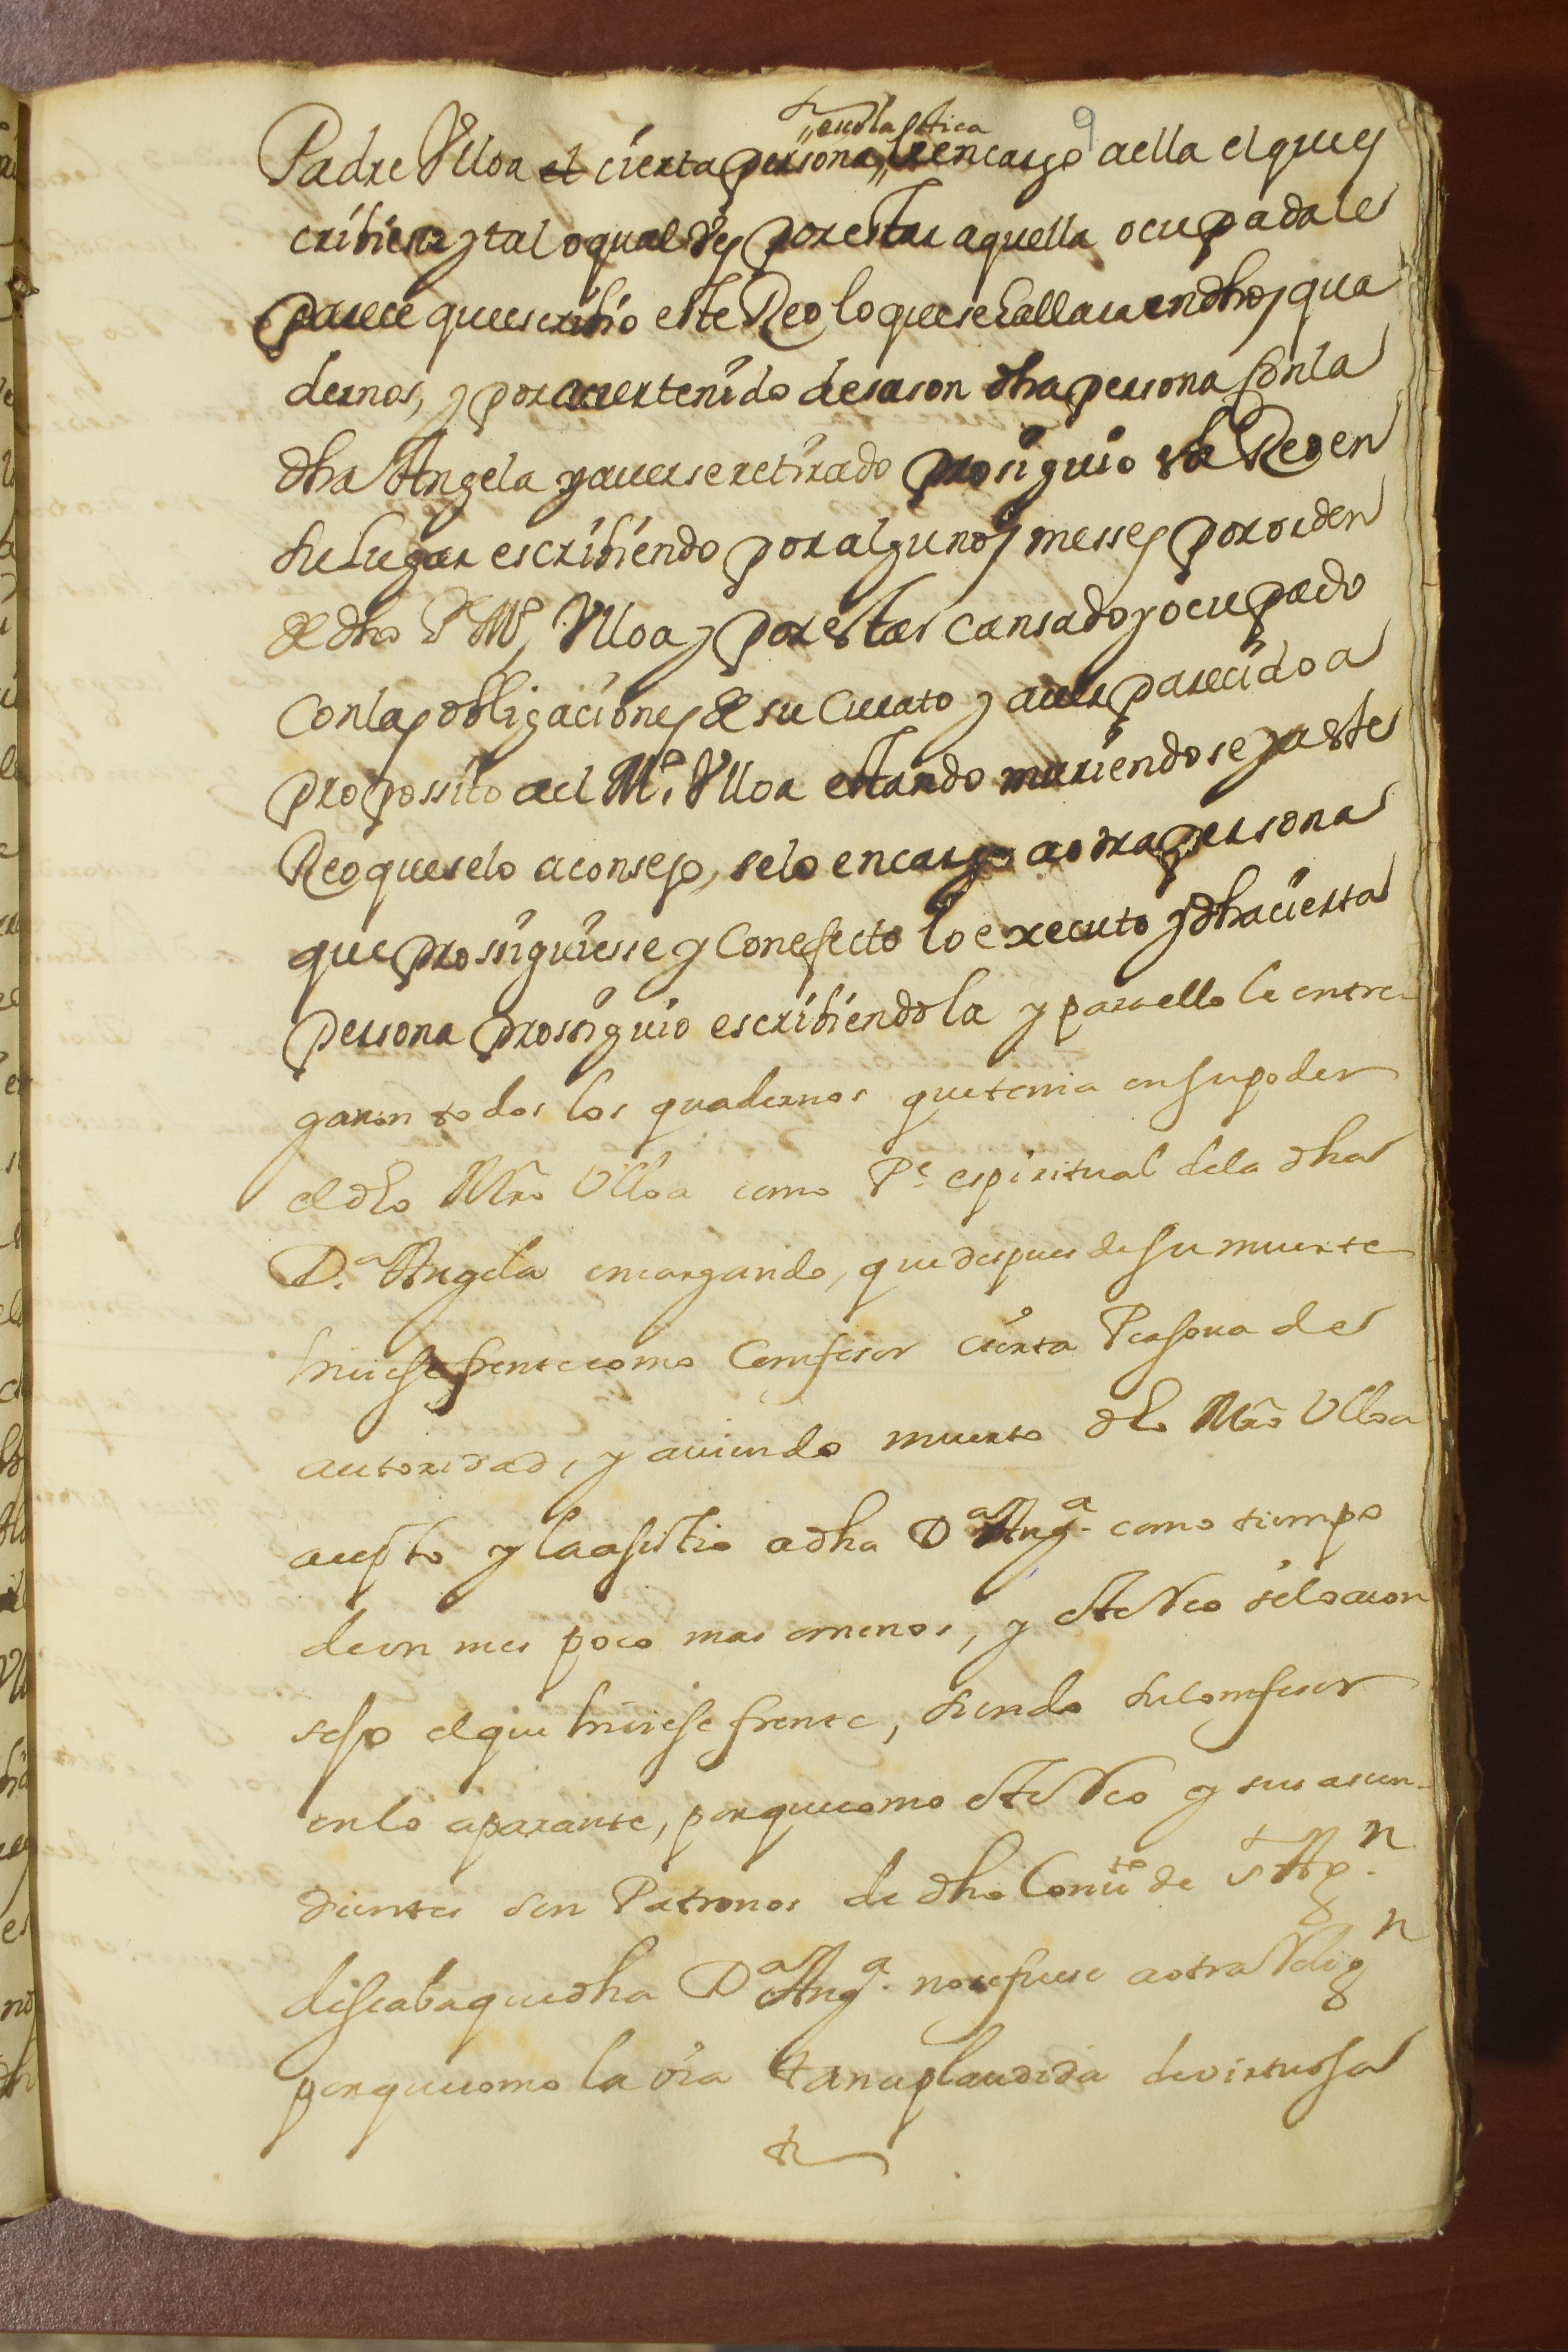 9
escolastica
Padre Vlloa el cierta persona, le encargo a ella el que es
cribiese y tal o qual ves por estar aquella ocupada le
parece que escribio este Reo lo que se hallara en dhos qua
dernos, y por aver tenido desason dha persona con la
dha Angela y averse retirado prosiguio este Reo en
su lugar escribiendo por algunos messes por orden
de dho P. Mo. Vlloa y por estar cansado y ocupado
con las obligaciones de su Curato y aver parecido a
propossito al Mo. Vlloa estando muriendose y a este
Reo que se lo aconsejo, se lo encargo a otra persona
que prosiguiesse y con efecto lo executo y dha cierta
persona prosiguio escribiendola y para ello le entre-
garon todos los quadernos que tenia en su poder
el dho Mro Ulloa como Pe. espiritual de la dha
D.a Angela encargando, que despues de su muerte
hiciese frente como Confesor cierta Persona de
autoridad, y aviendo muerto dho Mro Ulloa
acepto y la asistio a dha Da Anga. como tiempo
de un mes poco mas o menos, y este Reo se lo acon
sejo el que hiciese frente, siendo su Confesor
en lo aparante, porque como este Reo y sus asien-
dientes son Patronos de dho Convto de S Agn.
diseaba que dha Da Anga. no se fuese a otra Relign
porque como la via tan aplaudida de virtuosa